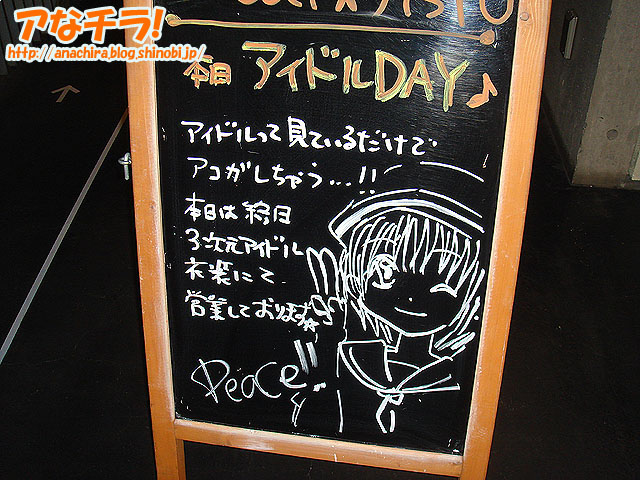 アなチラ!
http://anachira.blog.shinobi.jp/
本日 アイドルDAY♪
アイドルって見ているだけで
アコガしちゃう…!!
本日は終日
3次元アイドル
衣装にて
営業しております☆
Peace!!